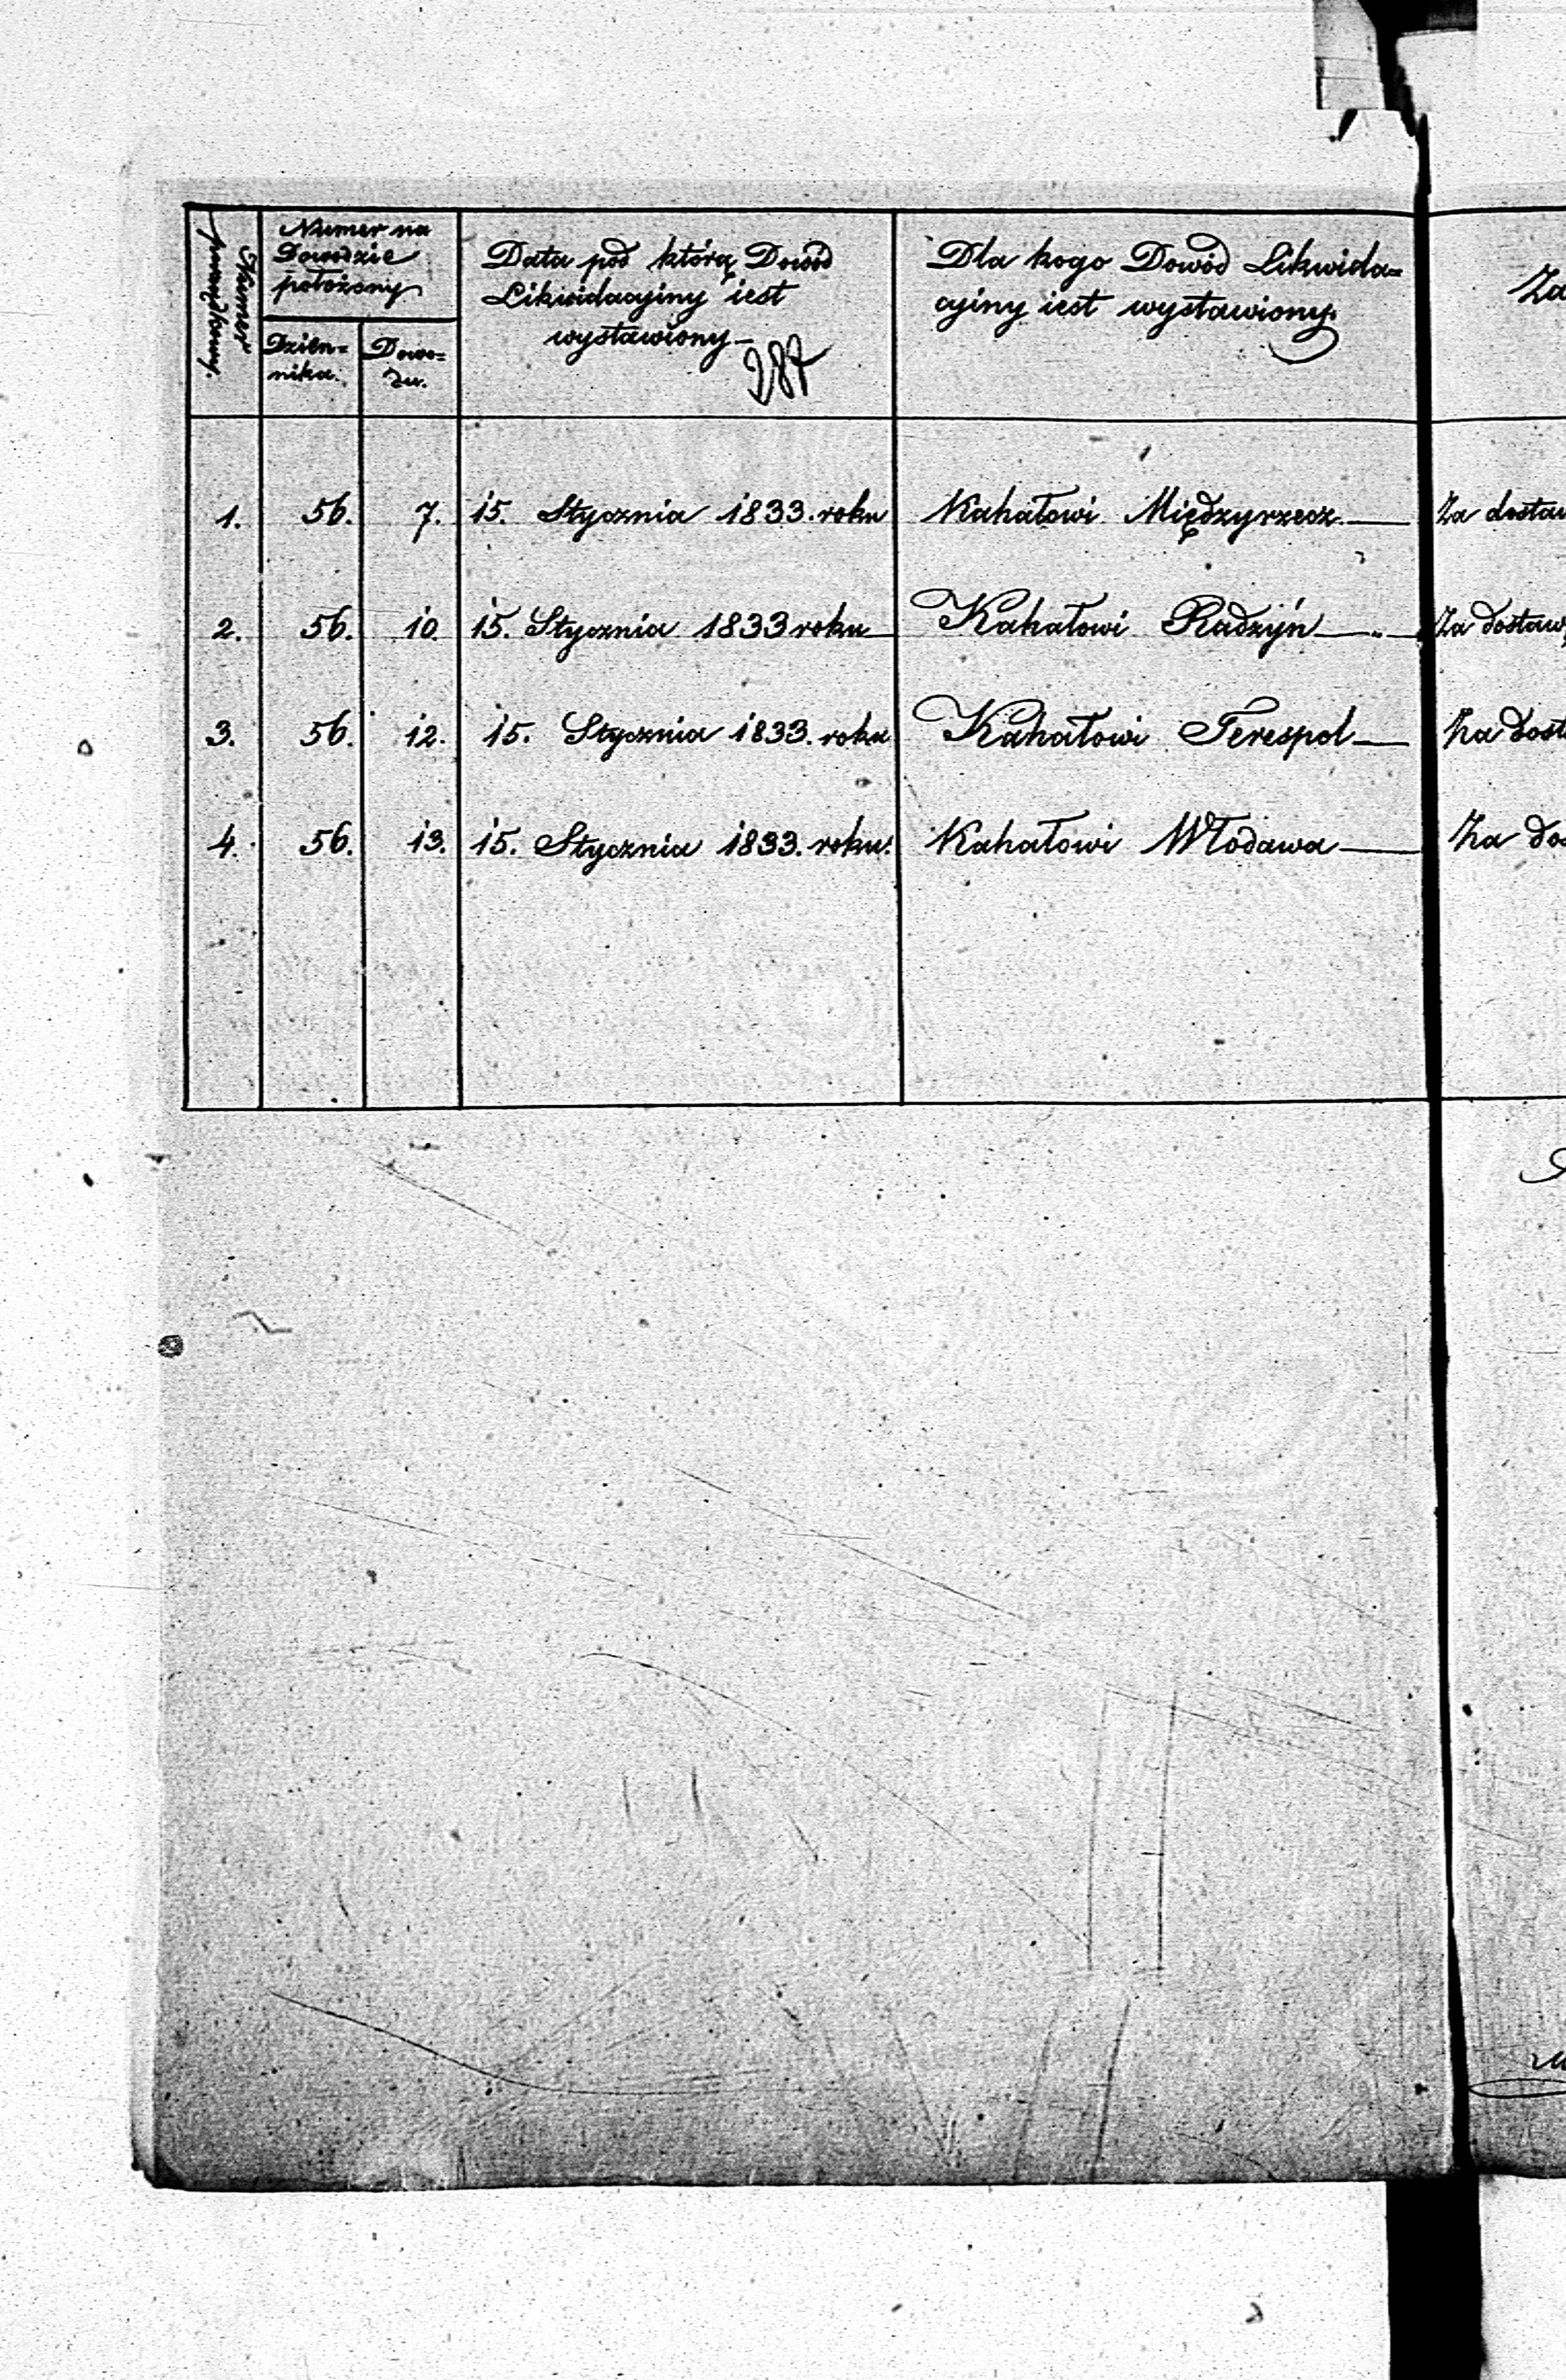 Numer
porządkowy.
Numer na
Dowodzie
położony
Dzien=
nika.
Dowo=
du.
Data pod którą Dowód
Likwidacyjny iest
wystawiony
287
Dla kogo Dowód Likwida=
cyjny iest wystawiony.
Za
1. 56. 7. 15. Stycznia 1833. roku Kahałowi Międzyrzecz. Za dostaw
2. 56. 10. 15. Stycznia 1833 roku Kahałowi Radzyń Za dostaw
3. 56. 12. 15. Stycznia 1833. roku Kahałowi Terespol Za dost
4. 56. 13. 15. Stycznia 1833. roku. Kahałowi Włodawa Za dos